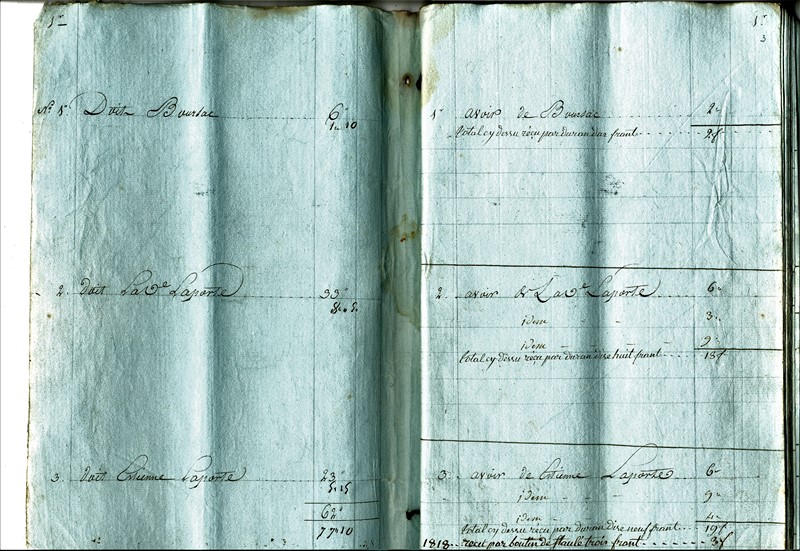 1r
N.º 1r Doit Boursac 6"
1" 10
2. doit La Ve Laporte 33"
8" 5"
3. doit Etienne Laporte 23"
5" 15
62"
77" 10
1r
3
1r avoir de Boursac 2"
total cy dessu reçu par duran dux frant 2f
2. avoir de La Ve Laporte 6"
idem 3"
idem 9"
total cy dessu reçu par duran dise huit frant 18f
3. avoir de Etienne Laporte 6"
idem 9"
idem 4"
total cy dessu reçu par duran dise neuf frant 19f
1818 reçu par boutin de flaulé trois frant 3f